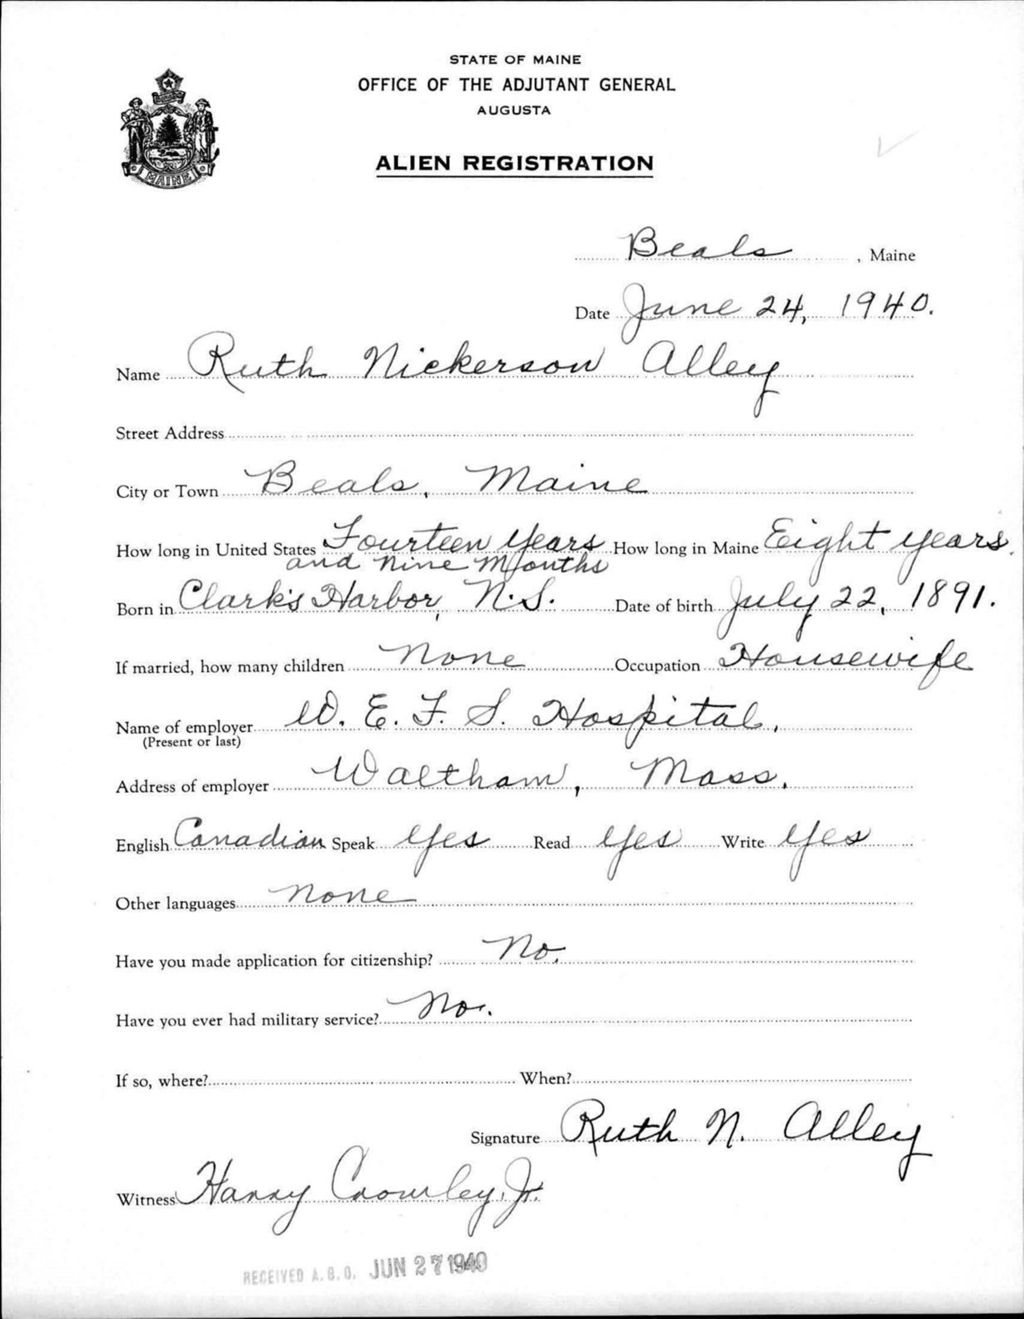 STATE OF MAINE
OFFICE OF THE ADJUTANT GENERAL
AUGUSTA
ALIEN REGISTRATION
MAINE
Beals, Maine
Date June 24, 1940.
Name Ruth Nickerson Alley
Street Address
City or Town Beals, Maine
How long in United States Fourteen Years How long in Maine Eight years.
and nine Months
Born in Clark's Harbor, N.S. Date of birth July 22, 1891.
If married, how many children None Occupation Housewife
Name of employer W. E. F. S. Hospital,
(Present or last)
Address of employer Waltham, Mass.
English Canadian Speak Yes Read Yes Write Yes
Other languages none
Have you made application for citizenship? No.
Have you ever had military service? No.
If so, where? When?
Signature Ruth N. Alley
Witness Harry Crowley, Jr.
RECEIVED A.G.O. JUN 27 1940